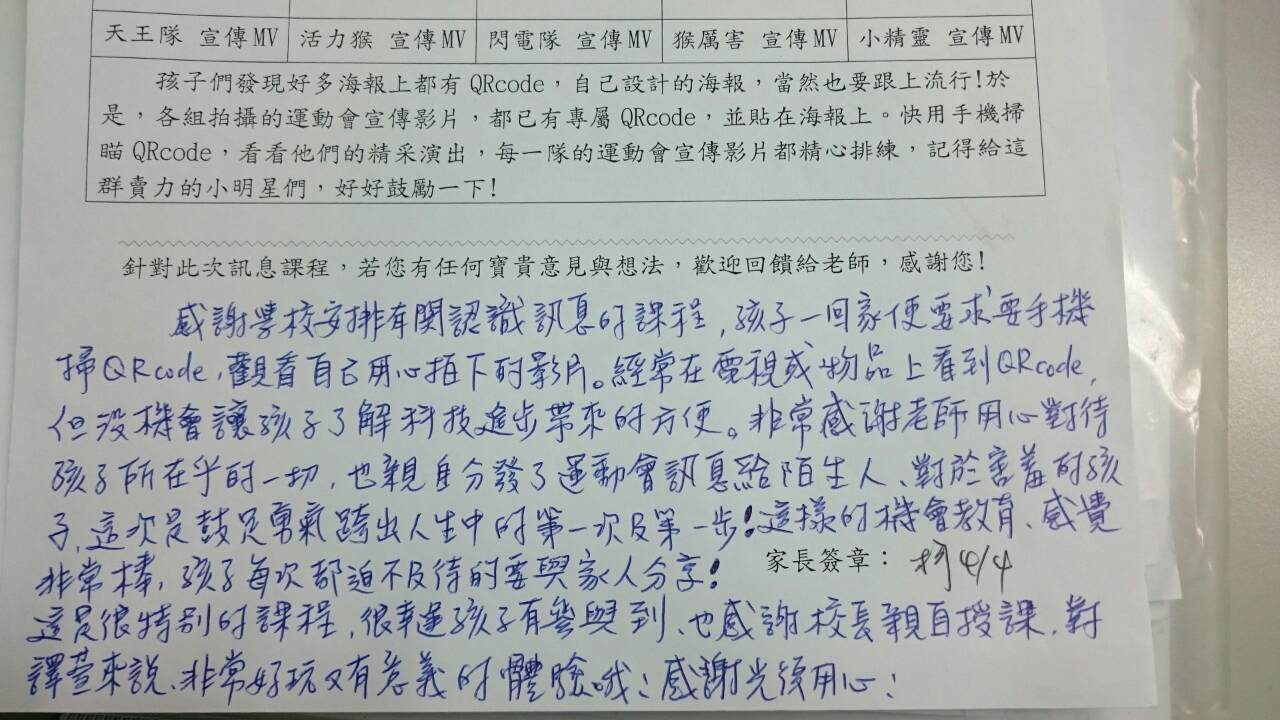 天王隊 宣傳MV 活力猴 宣傳MV 閃電隊 宣傳MV 猴厲害 宣傳MV 小精靈 宣傳MV
孩子們發現好多海報上都有 QRcode，自己設計的海報，當然也要跟上流行!於
是，各組拍攝的運動會宣傳影片，都已有專屬 QRcode，並貼在海報上。快用手機掃
瞄 QRcode，看看他們的精采演出，每一隊的運動會宣傳影片都精心排練，記得給這
群賣力的小明星們，好好鼓勵一下!
針對此次訊息課程，若您有任何寶貴意見與想法，歡迎回饋給老師，感謝您!
感謝學校安排有關認識訊息的課程，孩子一回家便要求要手機
掃QRcode，觀看自己用心拍下的影片。經常在電視或物品上看到QRcode，
但沒機會讓孩子了解科技進步帶來的方便。非常感謝老師用心對待
孩子所在乎的一切，也親自分發了運動會訊息給陌生人、對於害羞的孩
子，這次是鼓足勇氣跨出人生中的第一次及第一步!這樣的機會教育、感覺
非常棒，孩子每次都迫不及待的要與家人分享!
家長簽章： 楊 4/4
這是很特別的課程，很幸運孩子有參與到、也感謝校長親自授課，對
譯萱來說、非常好玩又有意義的體驗哦！感謝 用心！